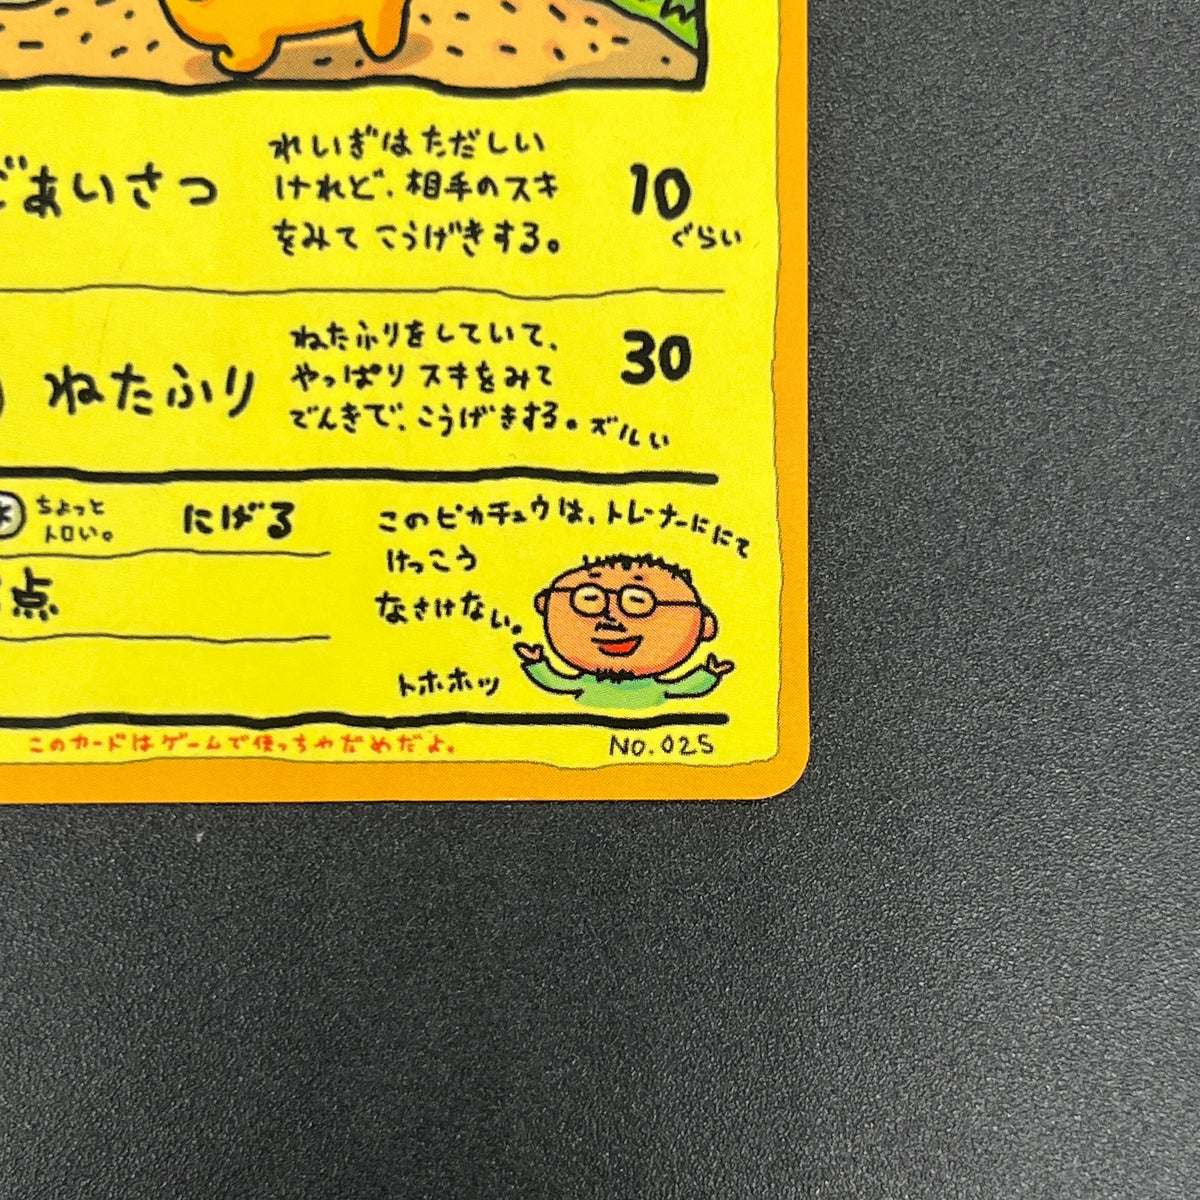 ごあいさつ
れいぎはただしい
けれど、相手のスキ
をみて こうげきする。
10
ぐらい
ねたふり
ねたふりをしていて、
やっぱり スキをみて
でんきで、こうげきする。ズルい
30
ちょっと
トロい。
にげる
点
このピカチュウは、トレーナーににて
けっこう
なさけない。
トホホッ
このカードはゲームで使っちゃだめだよ。
NO.025